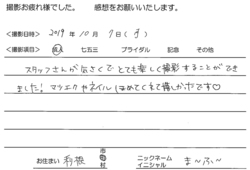 撮影お疲れ様でした。 感想をお願いいたします。
撮影日時 2019年 10月 7日(月)
撮影項目 成人 七五三 ブライダル 記念 その他
スタッフさんが気さくでとても楽しく撮影することができ
ました! マツエクやネイルほめてくれて嬉しかったです♡
市
お住まい 利根 町
村
ニックネーム
イニシャル ま〜ふ〜